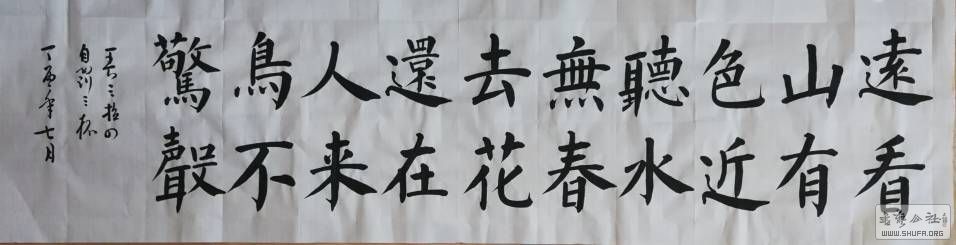 遠看
山有
色近
聽水
無春
去花
還在
人来
鳥不
驚聲
自罰三杯
丁酉年七月
书法公社
WWW.SHUFA.ORG